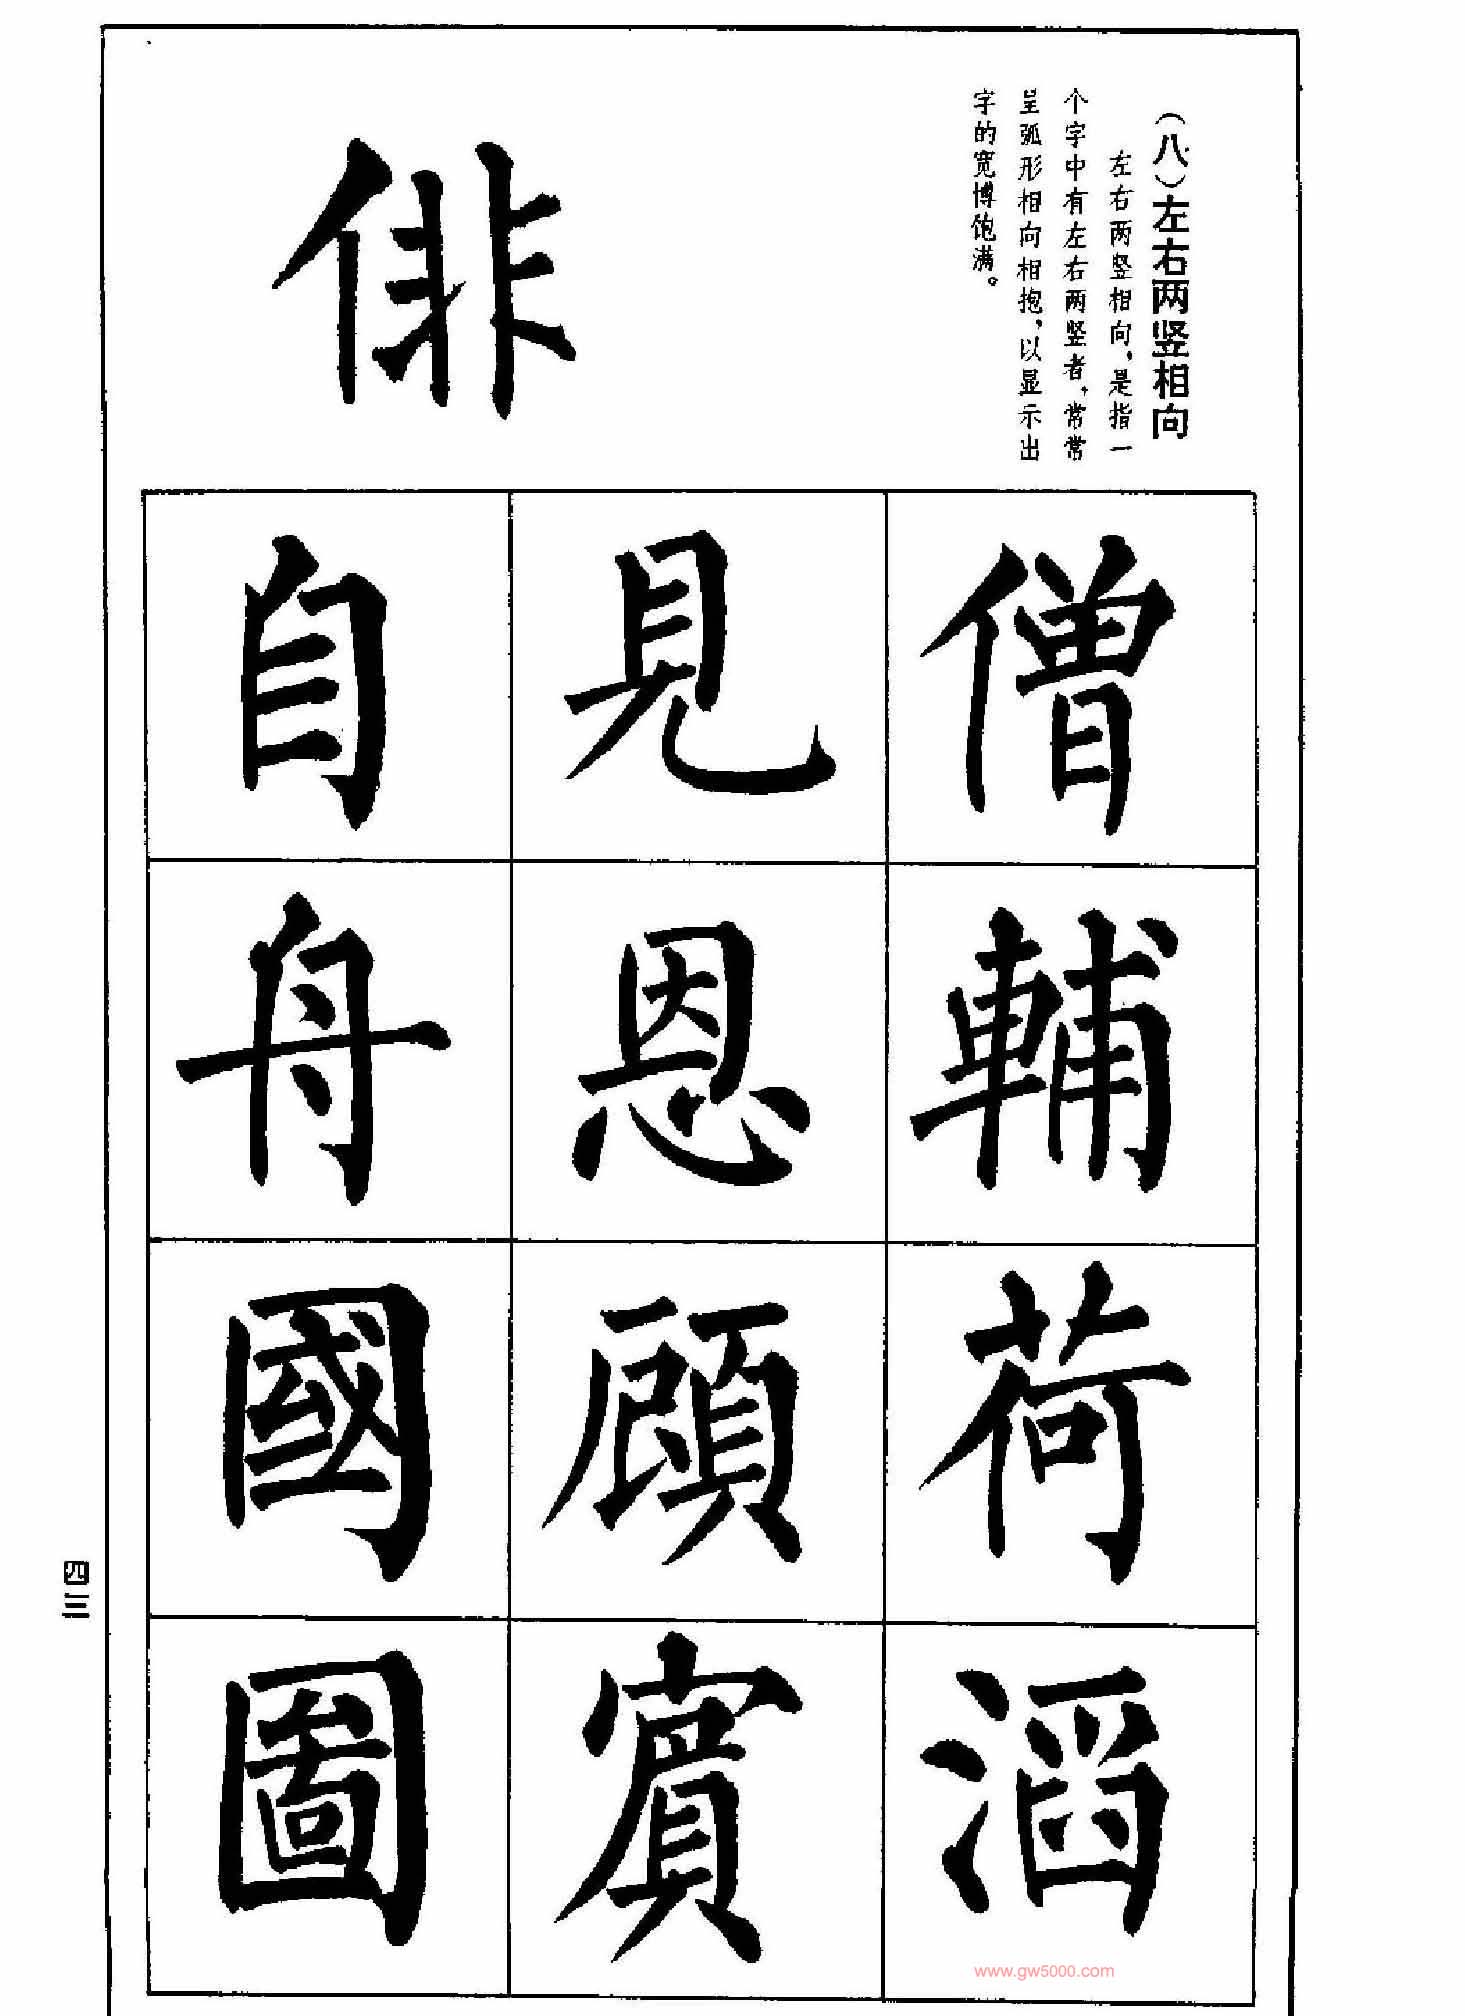 （八）左右两竖相向
左右两竖相向，是指一
个字中有左右两竖者，常常
呈弧形相向相抱，以显示出
字的宽博饱满。
俳
僧
輔
荷
滔
見
恩
顧
賓
自
舟
國
圖
四三
www.gw5000.com